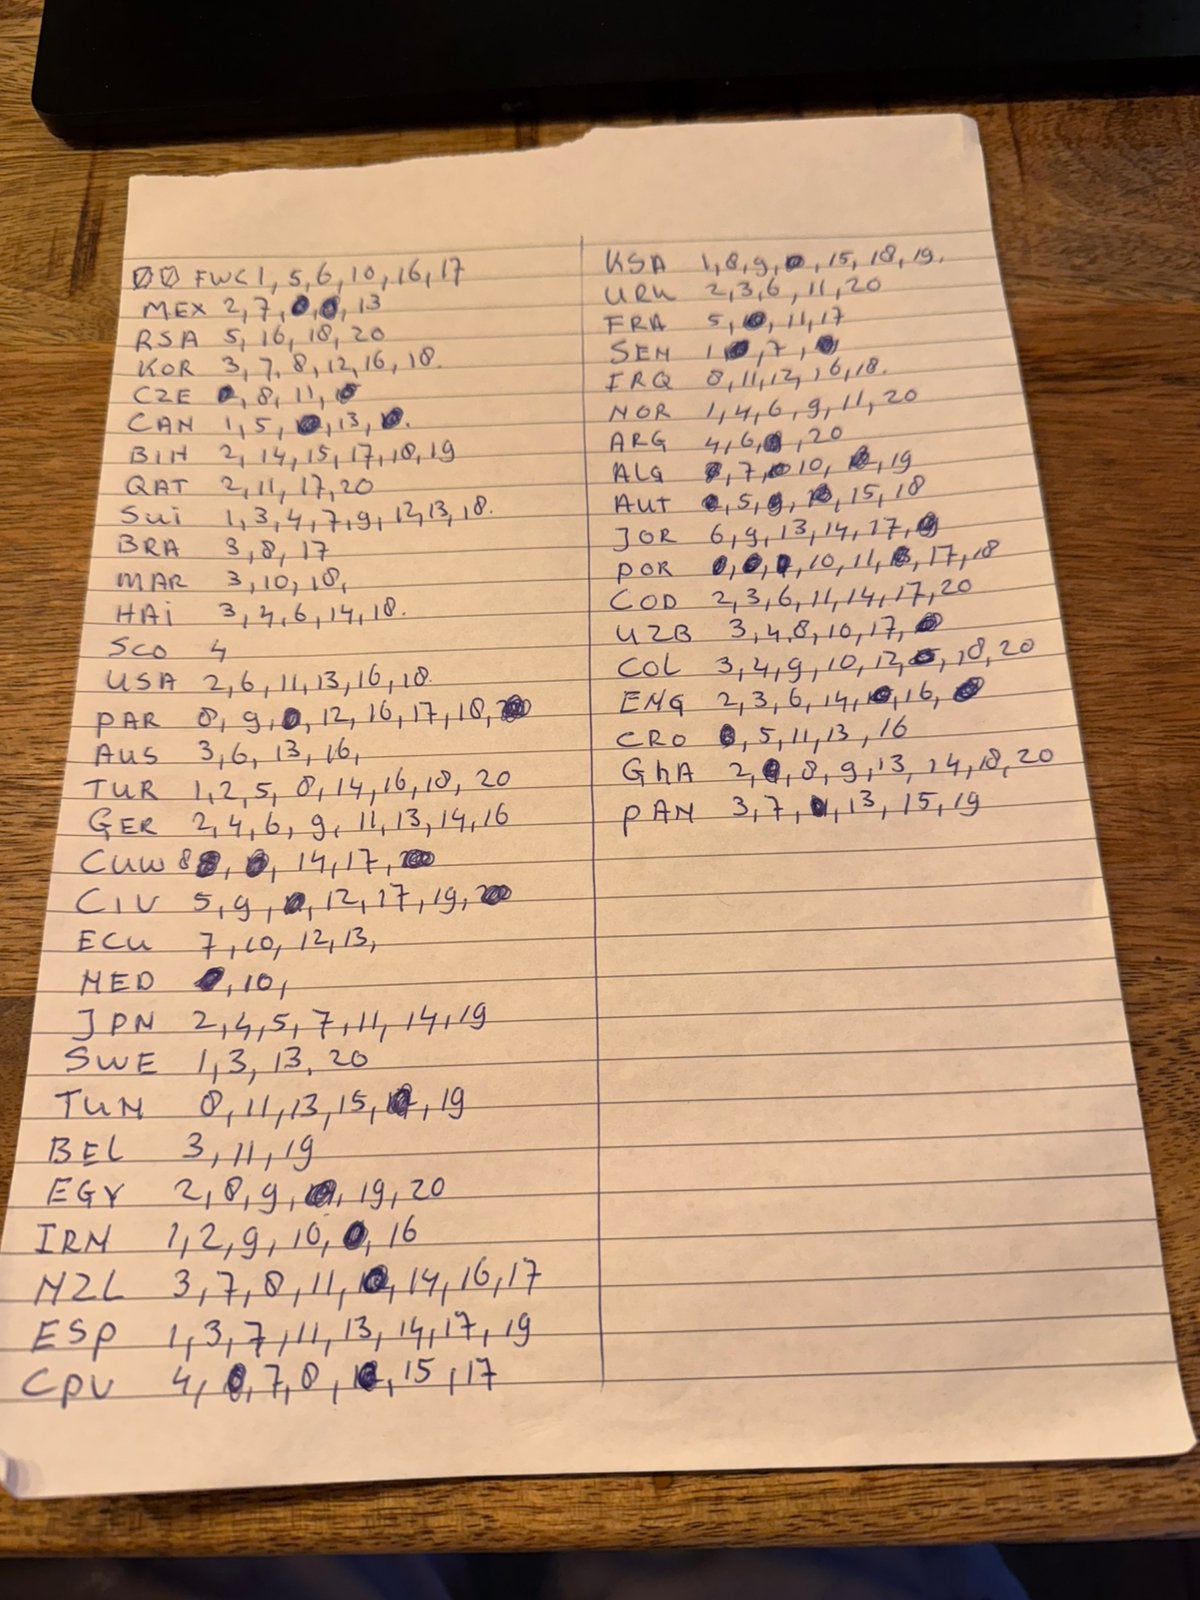 00 FWC 1, 5, 6, 10, 16, 17
MEX 2, 7, 13
RSA 5, 16, 18, 20
KOR 3, 7, 8, 12, 16, 18.
CZE 8, 11,
CAN 1, 5, 13,
BIH 2, 14, 15, 17, 18, 19
QAT 2, 11, 17, 20
SUi 1, 3, 4, 7, 9, 12, 13, 18.
BRA 3, 8, 17
MAR 3, 10, 18,
HAi 3, 4, 6, 14, 18.
SCO 4
USA 2, 6, 11, 13, 16, 18.
PAR 8, 9, 12, 16, 17, 18,
AUS 3, 6, 13, 16,
TUR 1, 2, 5, 8, 14, 16, 18, 20
GER 2, 4, 6, 9, 11, 13, 14, 16
CUW 8, 14, 17,
CIV 5, 9, 12, 17, 19,
ECU 7, 10, 12, 13,
NED 10,
JPN 2, 4, 5, 7, 11, 14, 19
SWE 1, 3, 13, 20
TUN 8, 11, 13, 15, 19
BEL 3, 11, 19
EGY 2, 8, 9, 19, 20
IRN 1, 2, 9, 10, 16
NZL 3, 7, 8, 11, 14, 16, 17
ESP 1, 3, 7, 11, 13, 14, 17, 19
CPV 4, 7, 8, 15, 17
KSA 1, 8, 9, 15, 18, 19.
URU 2, 3, 6, 11, 20
FRA 5, 11, 17
SEN 1, 7,
IRQ 8, 11, 12, 16, 18.
NOR 1, 4, 6, 9, 11, 20
ARG 4, 6, 20
ALG 7, 10, 19
AUT 5, 15, 18
JOR 6, 9, 13, 14, 17,
POR 10, 11, 17, 18
COD 2, 3, 6, 11, 14, 17, 20
UZB 3, 4, 8, 10, 17,
COL 3, 4, 9, 10, 12, 18, 20
ENG 2, 3, 6, 14, 16,
CRO 5, 11, 13, 16
GHA 2, 8, 9, 13, 14, 18, 20
PAN 3, 7, 13, 15, 19